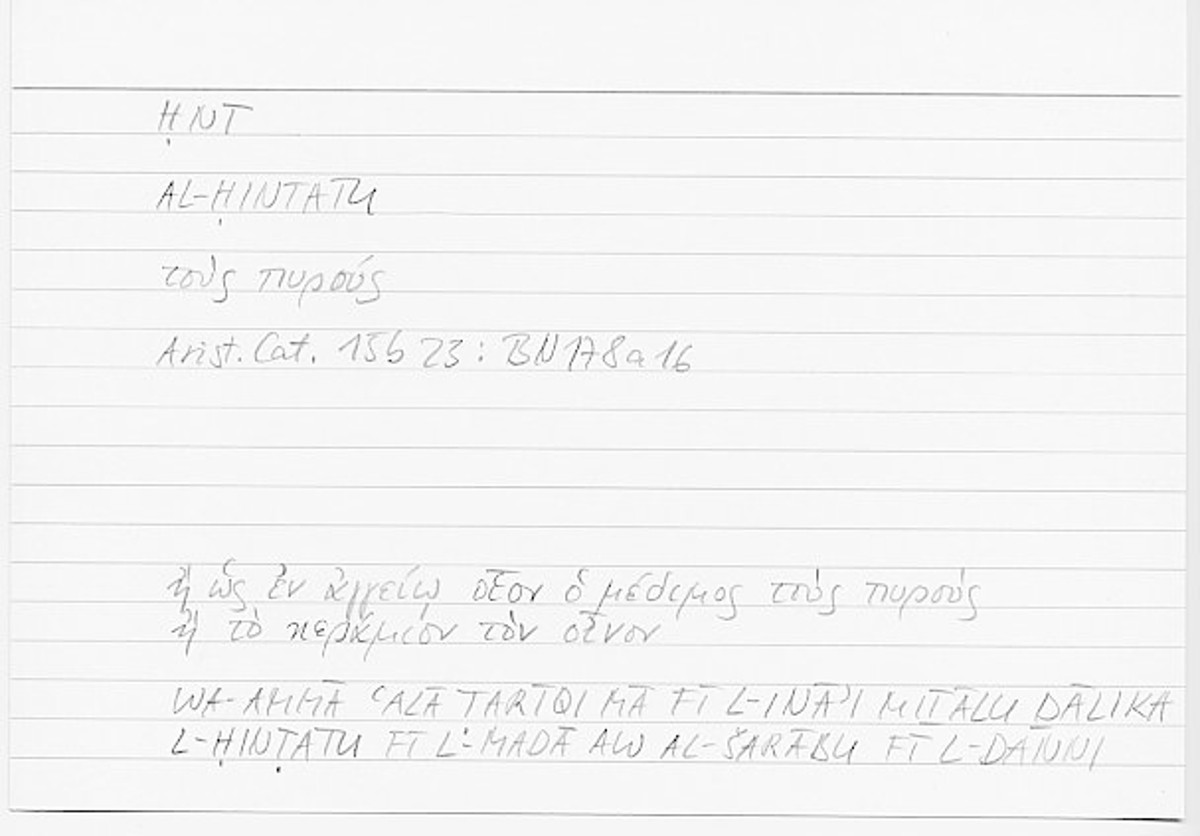 ḤNT
AL-ḤINTATU
τοὺς πυρούς
Arist. Cat. 15b 23 : BN 178a 16
ἢ ὡς ἐν ἀγγείῳ οἷον ὁ μέδιμος τοὺς πυροὺς
ἢ τὸ κεράμιον τὸν οἶνον
WA-AMMĀ ʿALĀ TARĪQI MĀ FĪ L-INĀʾI MIṮĀLU ḎĀLIKA
L-ḤINṬATU FĪ L-MADĀ AW AL-ŠARĀBU FĪ L-DANNI